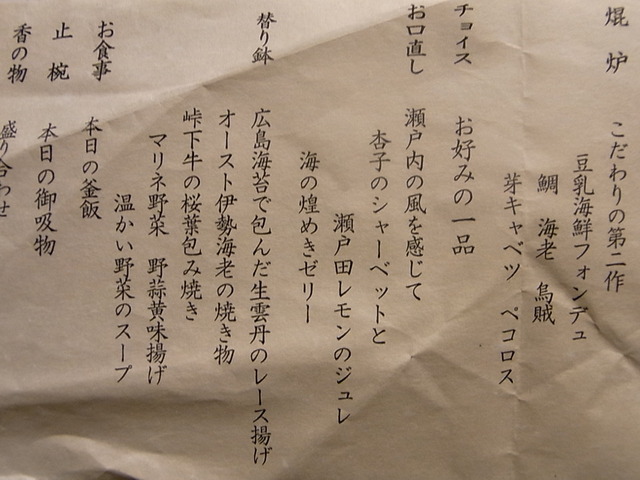 焜炉
こだわりの第二作
豆乳海鮮フォンデュ
鯛 海老 烏賊
芽キャベツ ペコロス
チョイス
お好みの一品
お口直し
瀬戸内の風を感じて
杏子のシャーベットと
瀬戸田レモンのジュレ
海の煌めきゼリー
替り鉢
広島海苔で包んだ生雲丹のレース揚げ
オースト伊勢海老の焼き物
峠下牛の桜葉包み焼き
マリネ野菜 野蒜黄味揚げ
温かい野菜のスープ
お食事
本日の釜飯
止椀
本日の御吸物
香の物
盛り合わせ